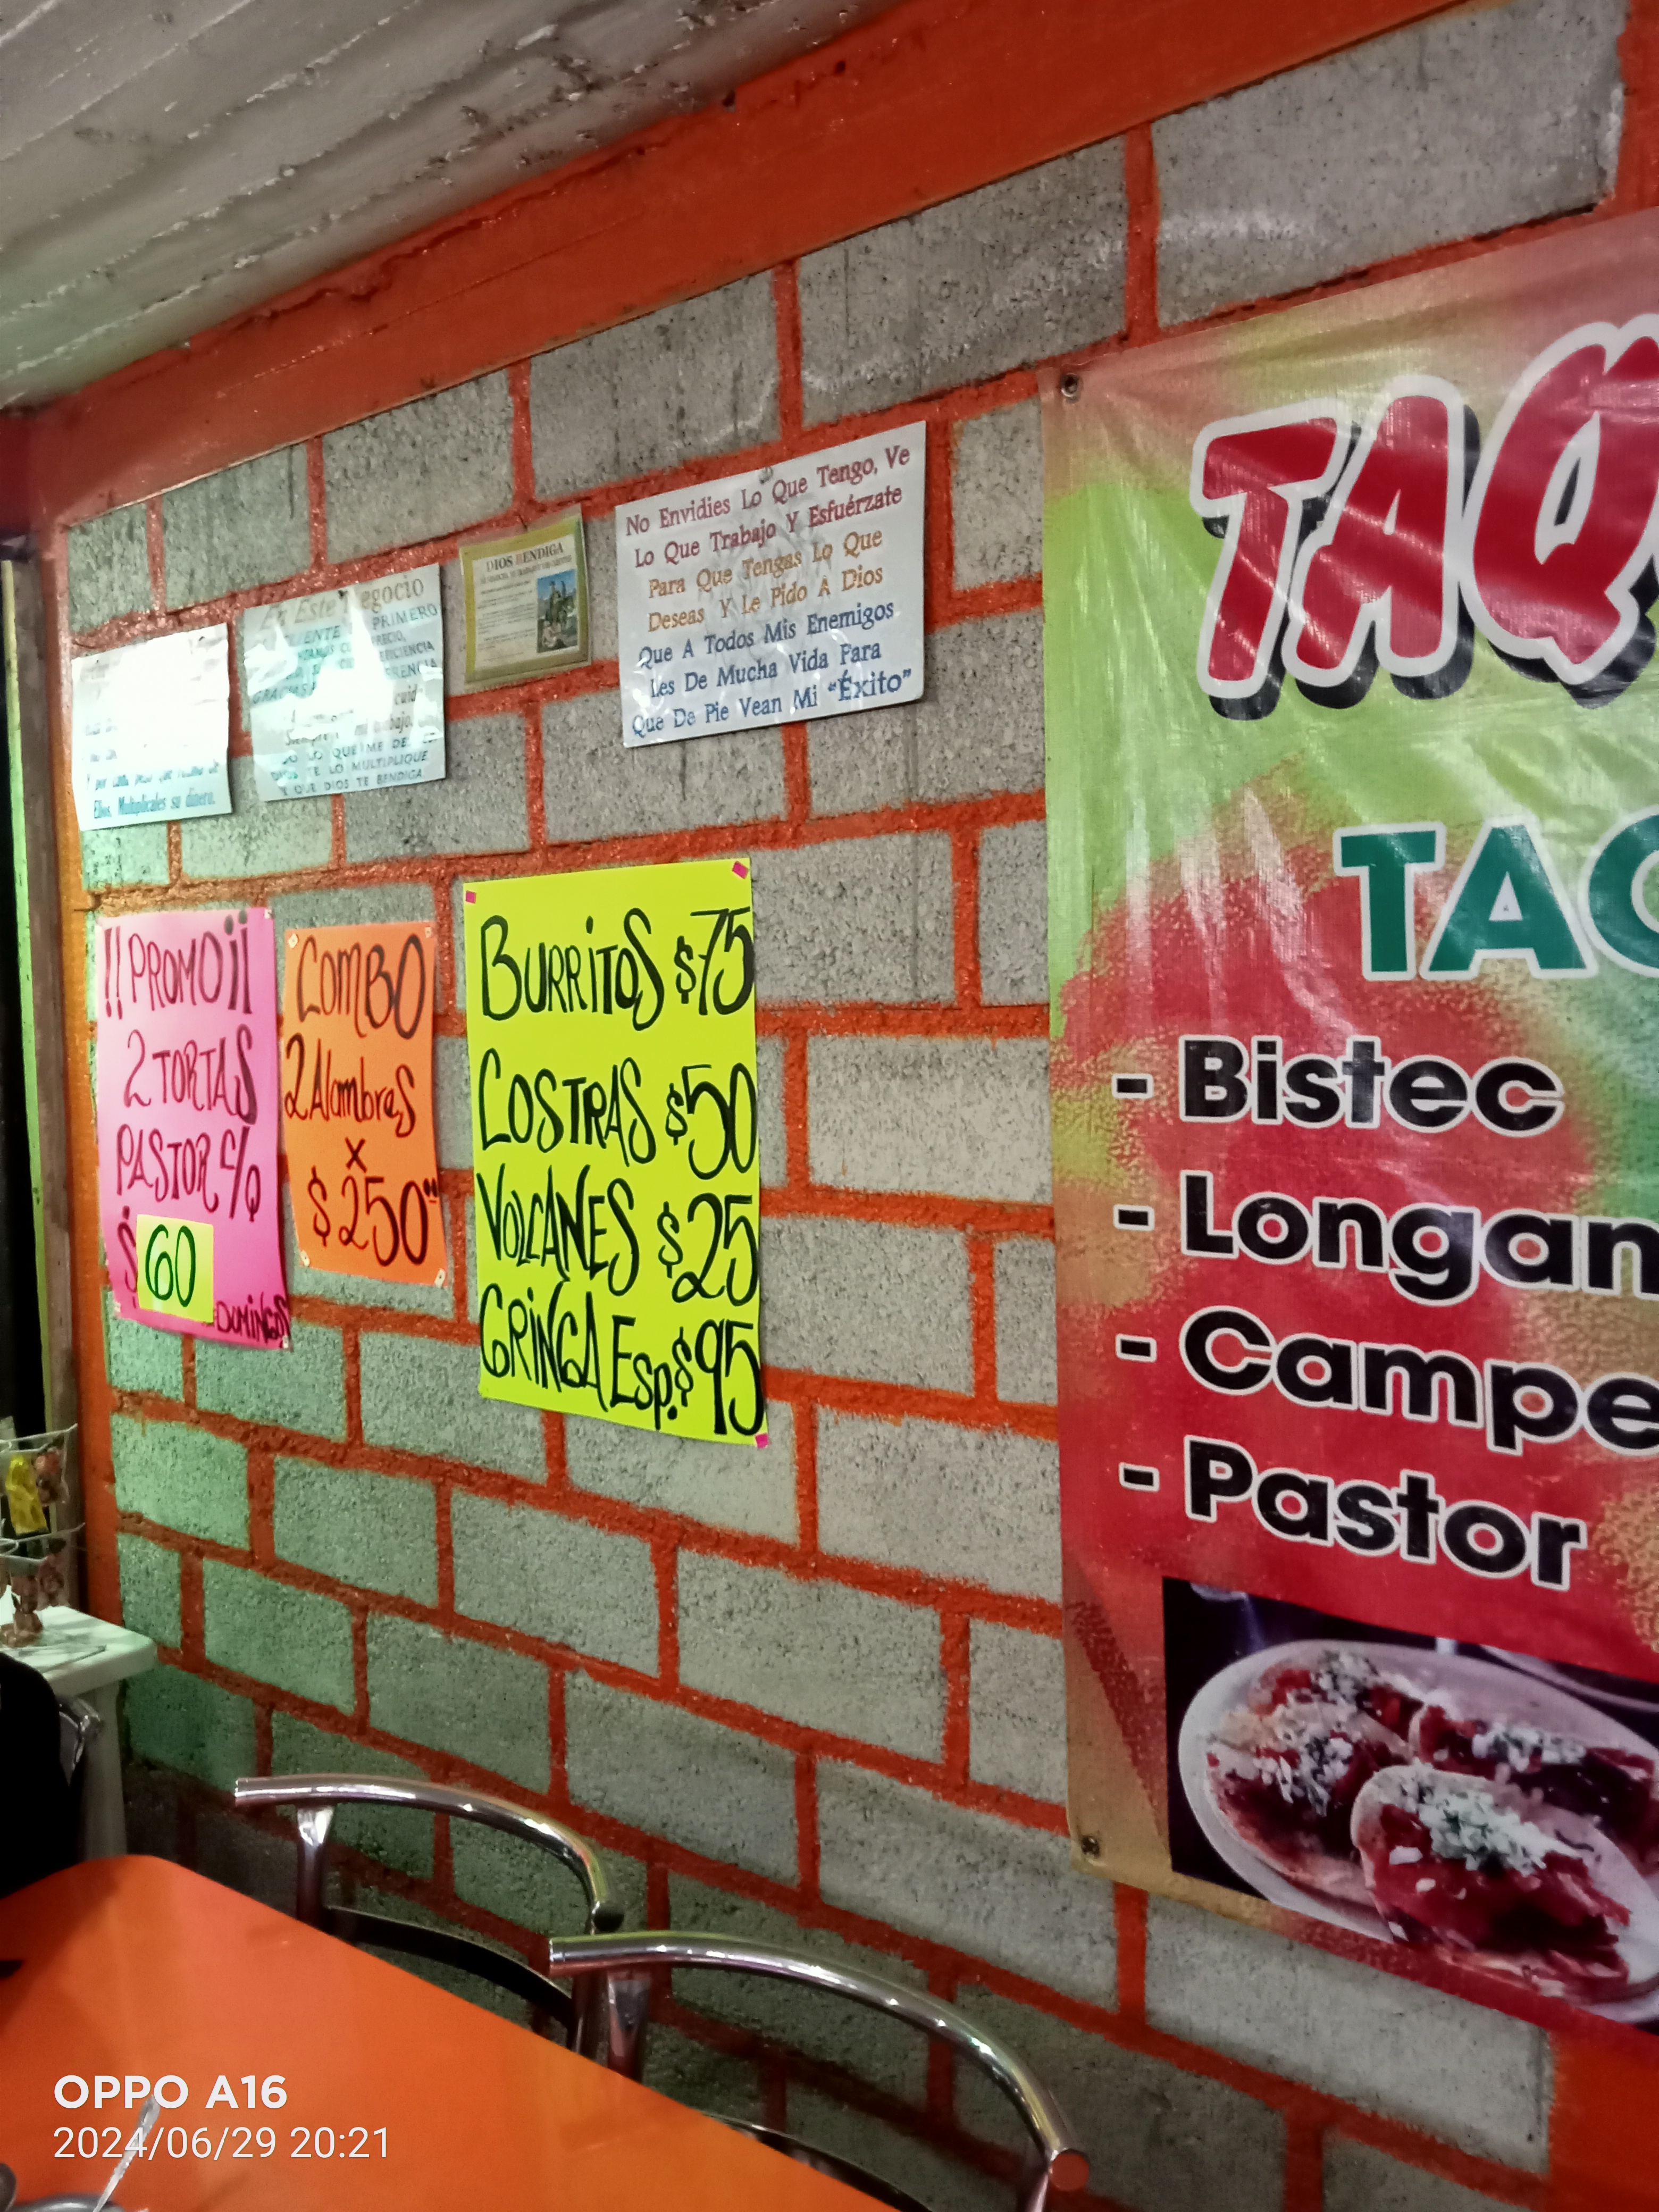 No Envidies Lo Que Tengo, Ve
Lo Que Trabajo Y Esfuérzate
Para Que Tengas Lo Que
Deseas Y Le Pido A Dios
Que A Todos Mis Enemigos
Les De Mucha Vida Para
Que De Pie Vean Mi "Éxito"
DIOS BENDIGA
En Este Negocio
PRIMERO
GRACIAS
Siempre mi trabajo.
LO QUE ME DE
TE LO MULTIPLIQUE
Y QUE DIOS TE BENDIGA
Y por cada peso que
Ellos, Multiplicales su dinero.
!!PROMO¡¡
2 TORTAS
PASTOR C/Q
$ 60
DOMINGOS
COMBO
2 Alambres
x
$250
BURRITOS $75
COSTRAS $50
VOLCANES $25
GRINGA Esp. $95
TAQ
TAC
- Bistec
- Longan
- Campe
- Pastor
OPPO A16
2024/06/29 20:21